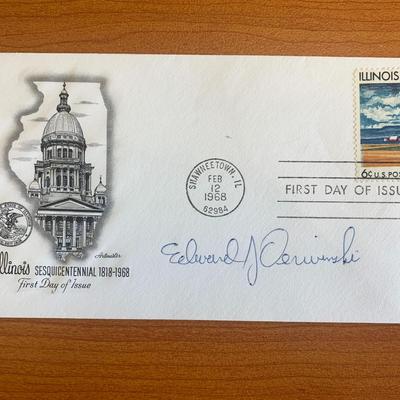 ILLINOIS
6¢ U.S. POS
SHAWNEETOWN, IL
FEB
12
1968
62984
FIRST DAY OF ISSU
Artmaster
llinois SESQUICENTENNIAL 1818-1968
First Day of Issue
Edward J Derwinski